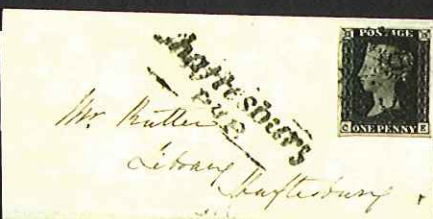 POSTAGE
C E
ONE PENNY
Shaftesbury
Mr. Rutter
Library
Shaftesbury